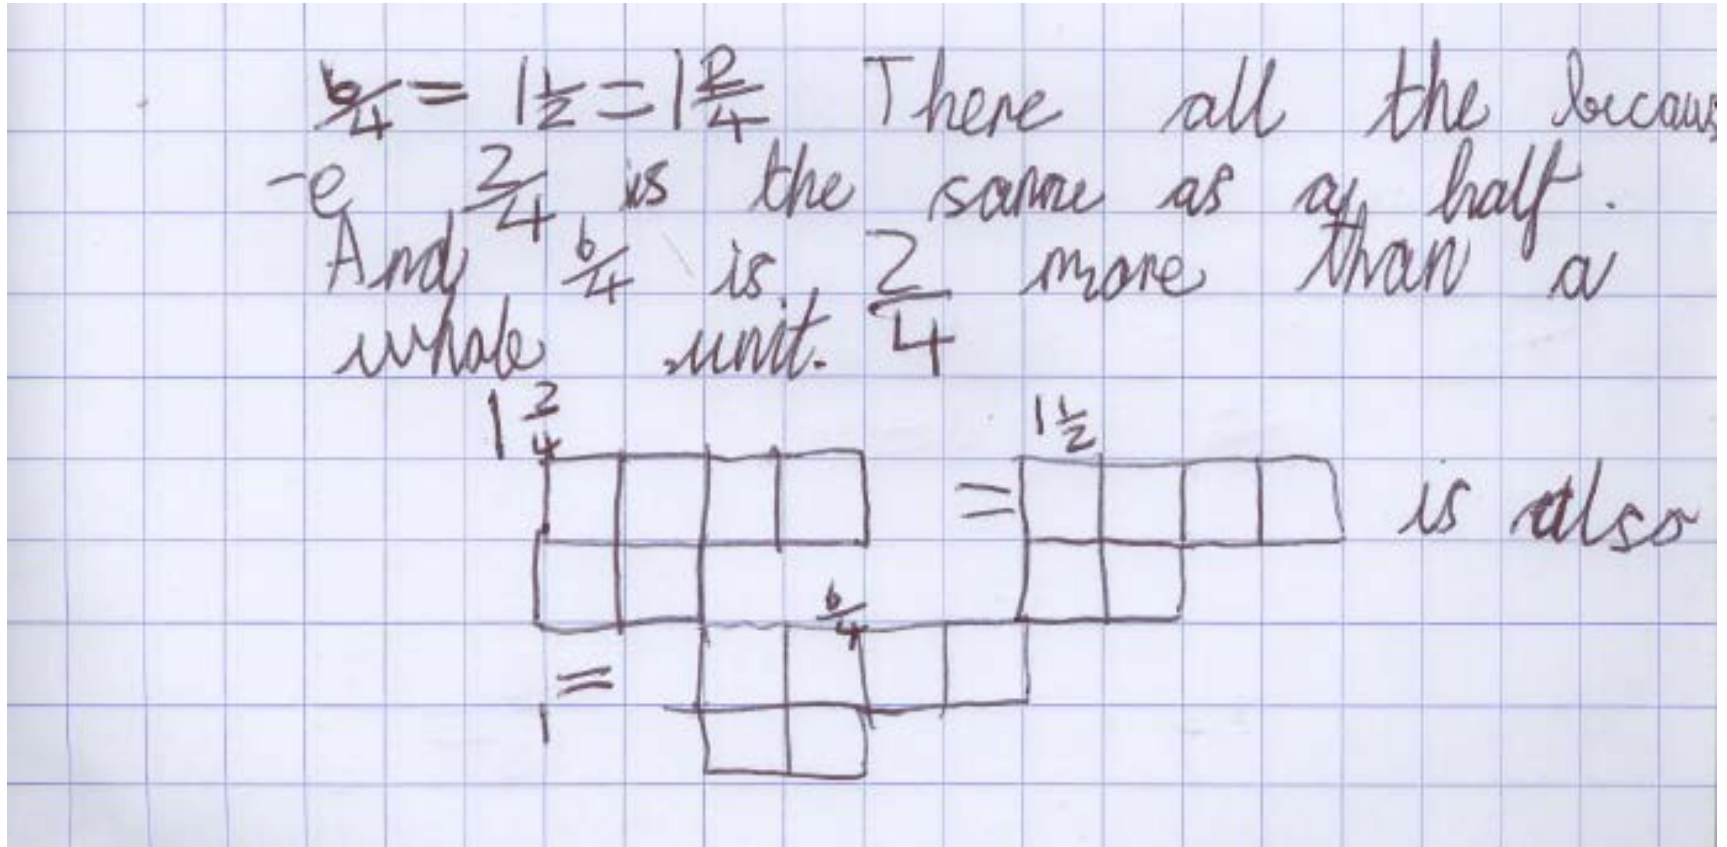 6/4 = 1 1/2 = 1 2/4 There all the becaus
-e 2/4 is the same as a half.
And 6/4 is 2/4 more than a
whole unit.
1 2/4 1 1/2
= is also
6/4
=